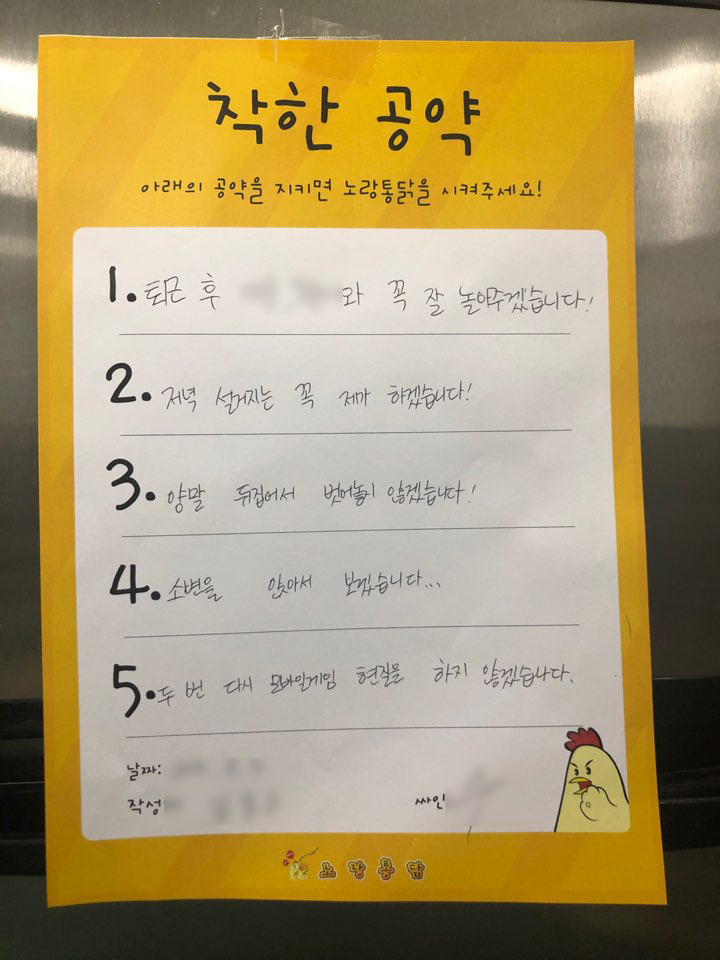 착한 공약
아래의 공약을 지키면 노랑통닭을 시켜주세요!
1. 퇴근 후 와 꼭 잘 놀아주겠습니다!
2. 저녁 설거지는 꼭 제가 하겠습니다!
3. 양말 뒤집어서 벗어놓지 않겠습니다!
4. 소변을 앉아서 보겠습니다...
5. 두 번 다시 모바일게임 현질을 하지 않겠습니다.
날짜:
작성
싸인
노랑통닭